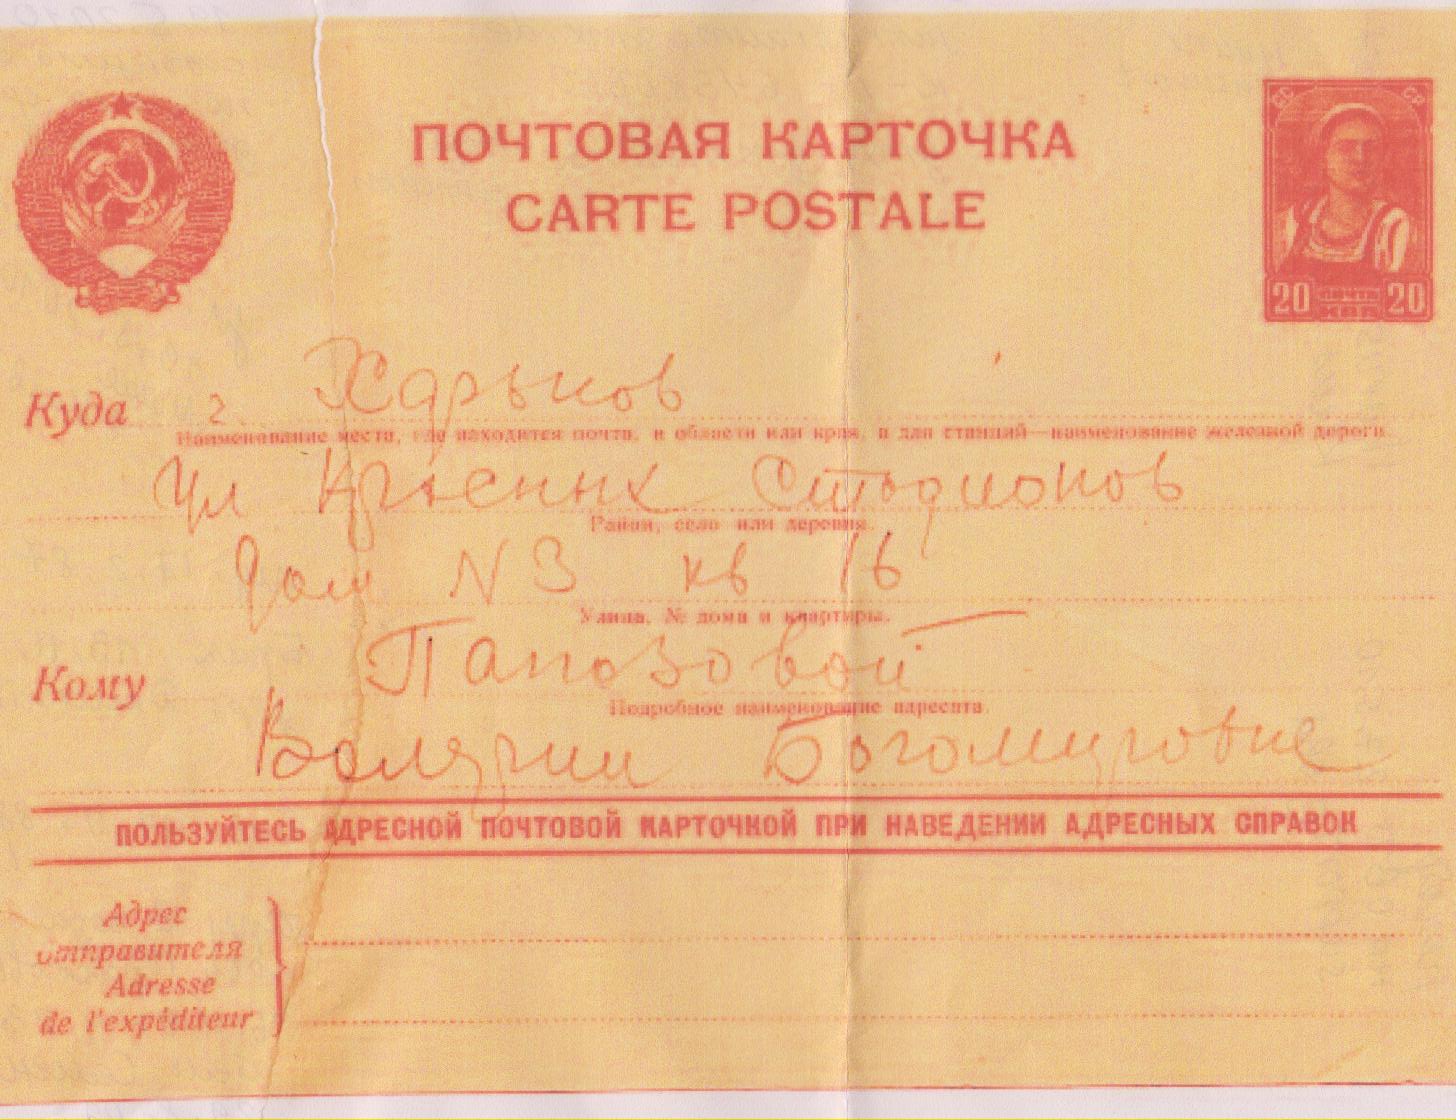 ПОЧТОВАЯ КАРТОЧКА
CARTE POSTALE
СС СР
20 20
Куда г. Харьков
Наименование места, где находится почта, и области или края, а для станций—наименование железной дороги.
Ул Красных
Район, село или деревня.
дом N 3 кв 16
Улица, № дома и квартиры.
Кому
Подробное наименование адресата.
ПОЛЬЗУЙТЕСЬ АДРЕСНОЙ ПОЧТОВОЙ КАРТОЧКОЙ ПРИ НАВЕДЕНИИ АДРЕСНЫХ СПРАВОК
Адрес
отправителя
Adresse
de l'expéditeur